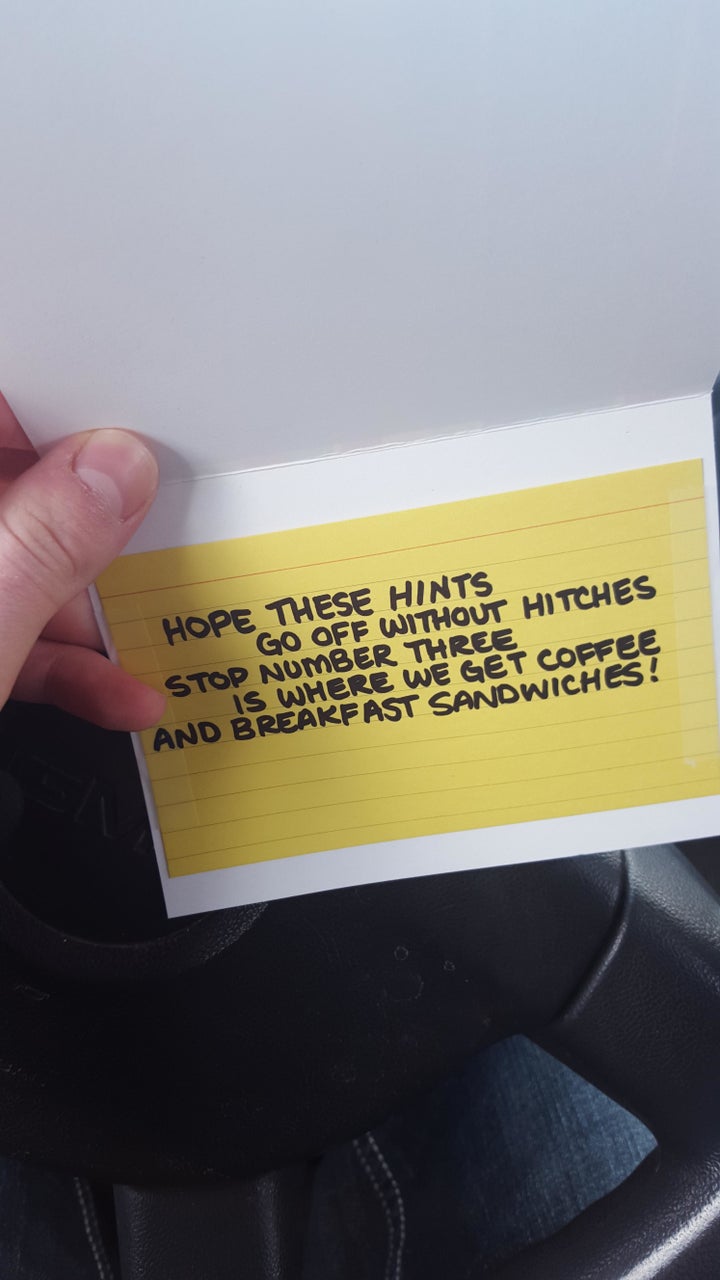 HOPE THESE HINTS
GO OFF WITHOUT HITCHES
STOP NUMBER THREE
IS WHERE WE GET COFFEE
AND BREAKFAST SANDWICHES!